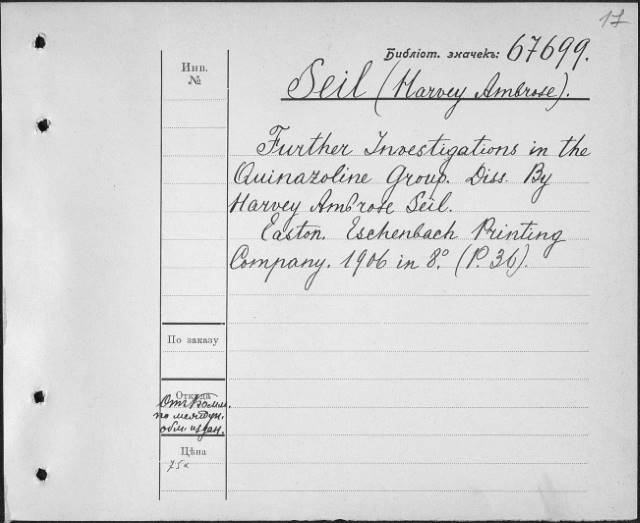 17
Библіот. значекъ: 67699.
Инв.
№
Seil (Harvey Ambrose).
Further Investigations in the
Quinazoline Group. Diss. By
Harvey Ambrose Seil.
Easton. Eschenbach Printing
Company. 1906 in 8º. (P. 36).
По заказу
Откуда
Отъ Комм.
по междун.
обм. издан.
Цѣна
75к